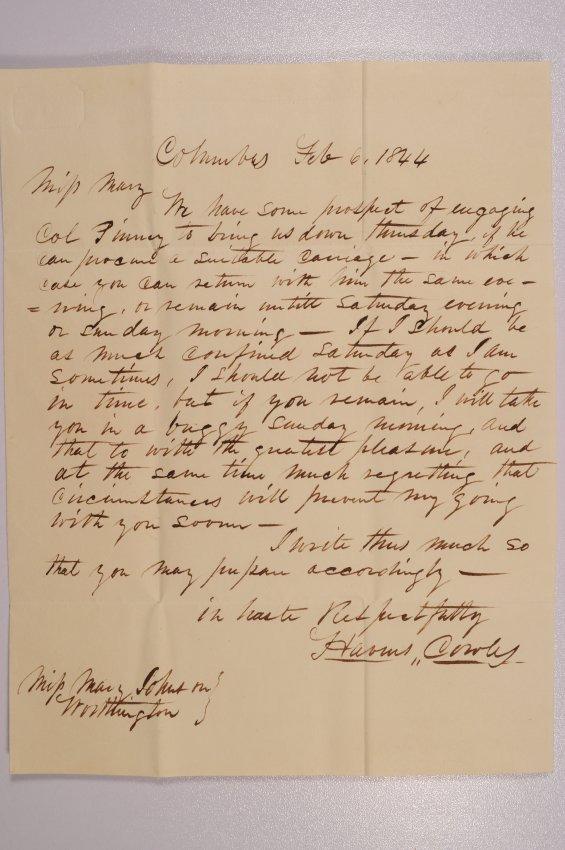 Columbus Feb 6, 1844
Miss Mary
We have some prospect of engaging
Col Pinney to bring us down thursday, if he
can procure a suitable carriage — in which
case you can return with him the same eve -
= ning, or remain untill Saturday evening
or sunday morning — If I should be
as much confined saturday as I am
sometimes, I should not be able to go
in time, but if you remain, I will take
you in a buggy sunday morning, and
that to with the greatest pleasure, and
at the same time much regretting that
circumstances will prevent my going
with you sooner —
I write thus much so
that you may prepare accordingly —
in haste Respectfully
Havens Cowles
Miss Mary Johnson
Worthington